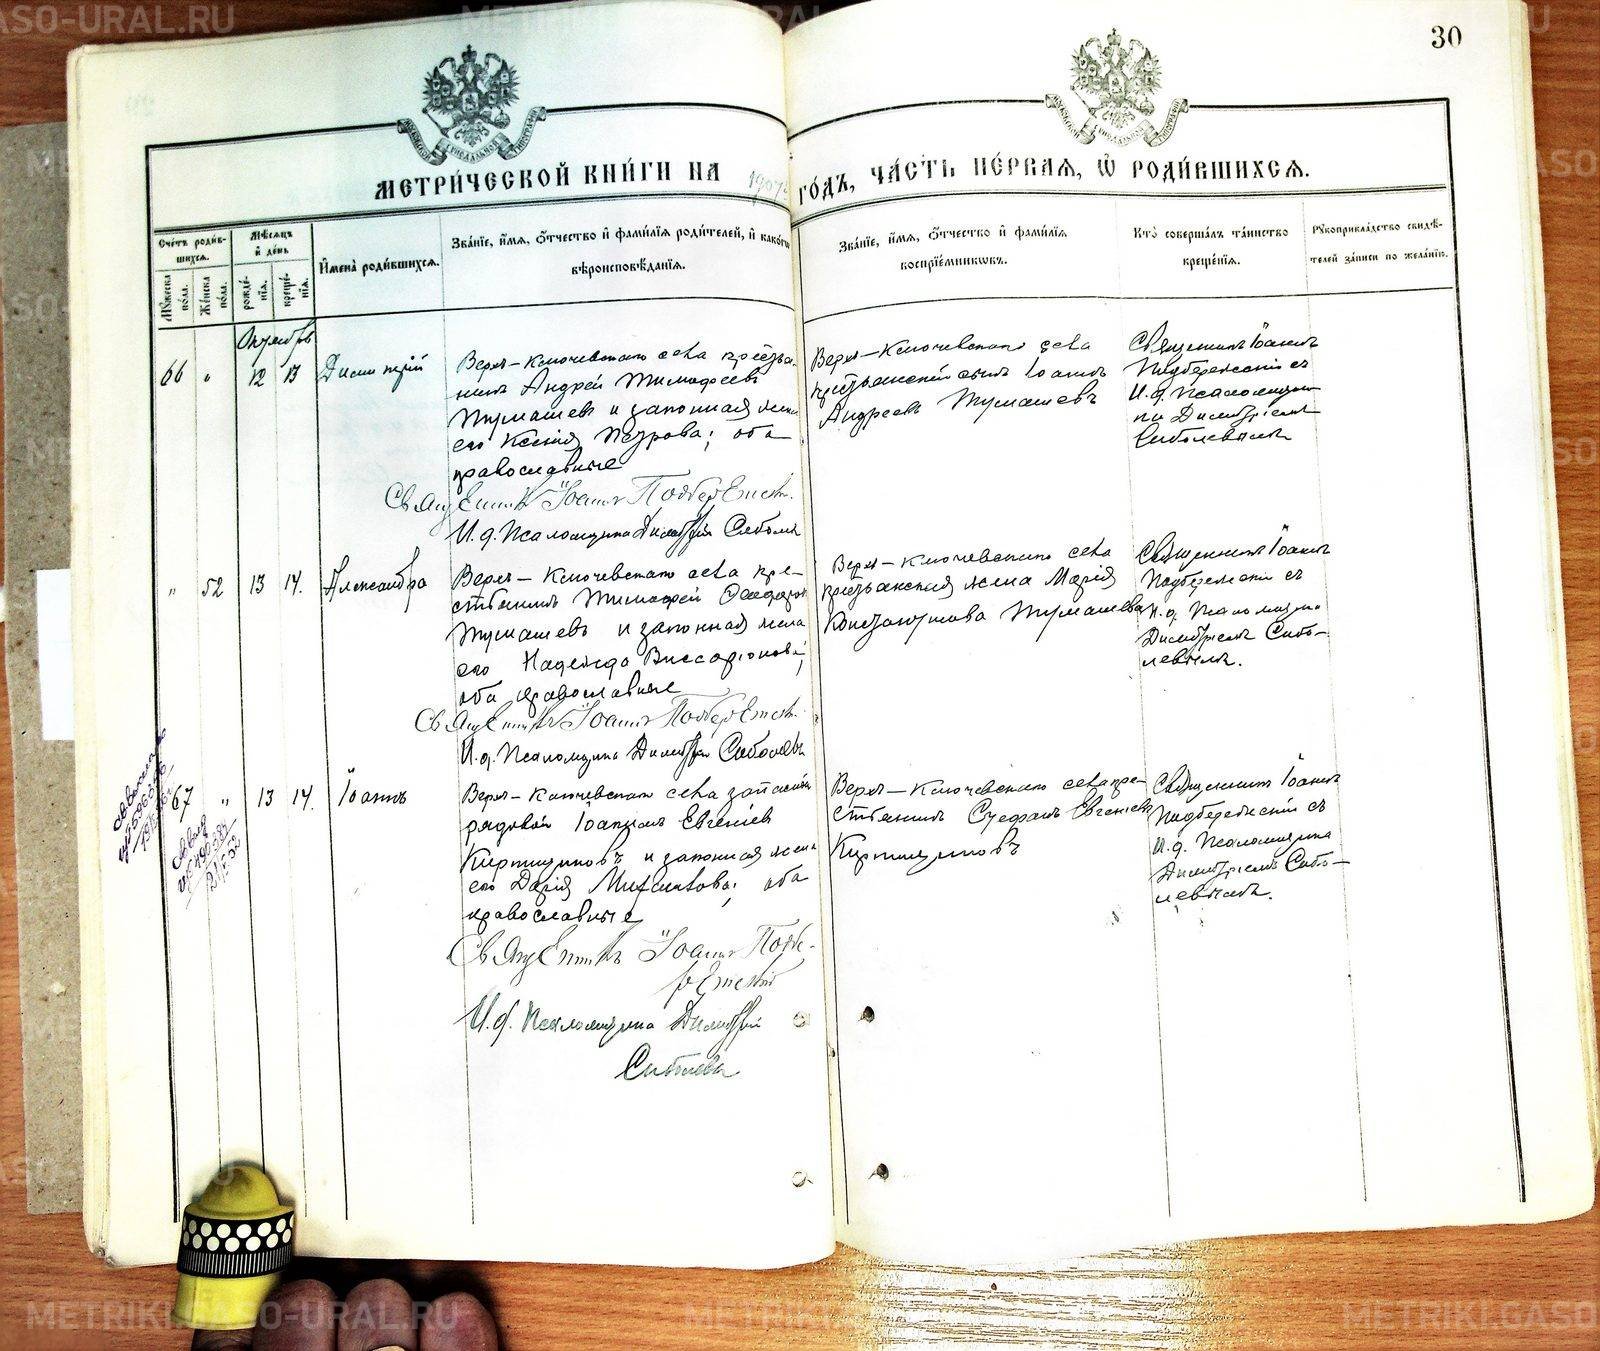 30
МЕТРИ́ЧЕСКОЙ КНИ́ГИ НА 1907 ГО́ДЪ, ЧА́СТЬ ПЕ́РВАЯ, Ѡ҆ РОДИ́ВШИХСЯ.
Сче́тъ роди́вшихся.
Мѣ́сяцъ и҆ де́нь
И҆мена̀ роди́вшихся.
Зва́нїе, и҆́мя, ѻ҆́тчество и҆ фами́лїя роди́телей, и҆ како́гѡ
вѣроисповѣ́данїя.
Зва́нїе, и҆́мя, ѻ҆́тчество и҆ фами́лїя
воспрїе́мниковъ.
Кто̀ соверша́лъ та́инство
креще́нїя.
Рꙋкоприкла́дство свидѣ́-
телей за́писи по жела́нїю.
Мꙋ́жеска по́ла.
Же́нска по́ла.
рожде́нїя.
креще́нїя.
Октябрь
66 " 12 13 Димитрій
Верхъ-Ключевскаго села крестья-
нинъ Андрей Тимофеевъ
Тумашевъ и законная жена
его Ксенія Петрова; оба
православные
Священникъ Іоаннъ Подбережскій
И. д. Псаломщика Димитрій Соболевъ
Верхъ-Ключевскаго села
крестьянскій сынъ Іоаннъ
Андреевъ Тумашевъ
Священникъ Іоаннъ
Подбережскій съ
И. д. Псаломщи-
ка Димитріемъ
Соболевымъ
" 52 13 14. Александра
Верхъ-Ключевскаго села кре-
стьянинъ Тимофей Феодоровъ
Тумашевъ и законная жена
его Надежда Виссаріонова;
оба православные
Священникъ Іоаннъ Подбережскій
И. д. Псаломщика Димитрій Соболевъ
Верхъ-Ключевскаго села
крестьянская жена Марія
Константинова Тумашева
Священникъ Іоаннъ
Подбережскій съ
И. д. Псаломщика
Димитріемъ Собо-
левымъ.
67 " 13 14. Іоаннъ
Верхъ-Ключевскаго села запасный
рядовой Іоакимъ Евгеніевъ
Кирпищиковъ и законная жена
его Дарія Михаилова; оба
православные
Священникъ Іоаннъ Подбе-
режскій
И. д. Псаломщика Димитрій
Соболевъ
Верхъ-Ключевскаго села кре-
стьянинъ Стефанъ Евгеніевъ
Кирпищиковъ
Священникъ Іоаннъ
Подбережскій съ
И. д. Псаломщика
Димитріемъ Собо-
левымъ.
METRIKI.GASO-URAL.RU